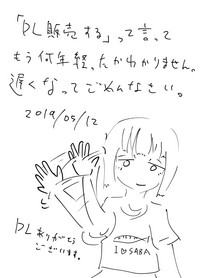 「DL販売する」って言って
もう何年経ったかわかりません。
遅くなってごめんなさい。
2019/05/12
DLありがとう
ございます。
I♡SABA